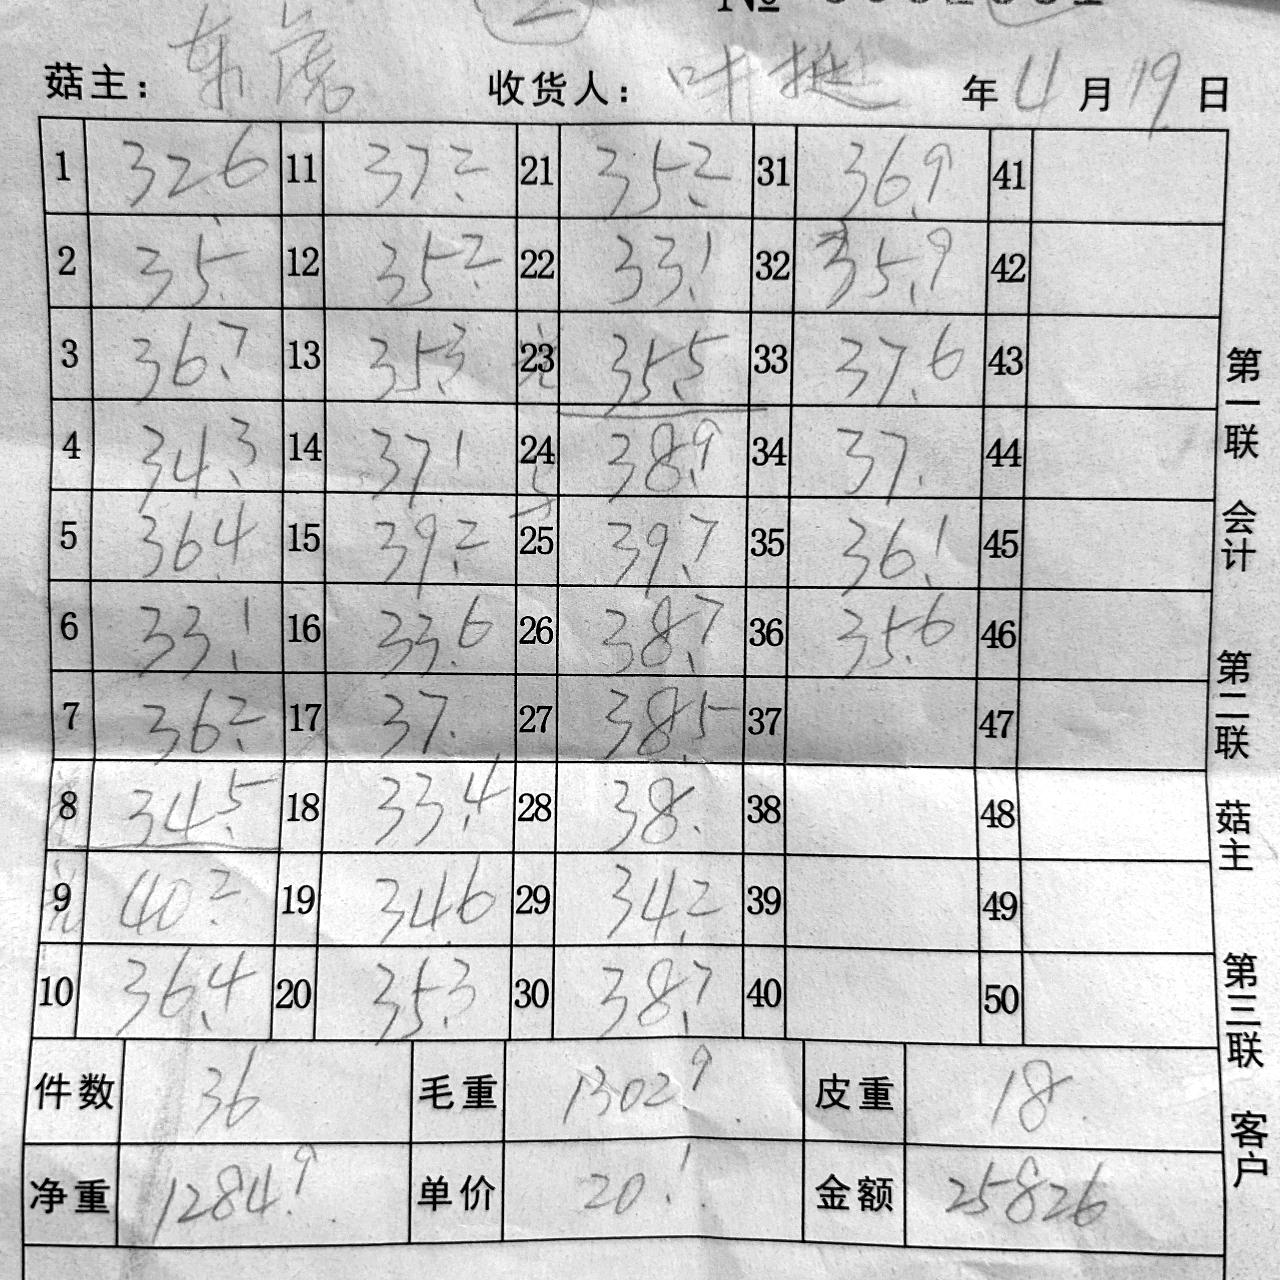 菇主： 东虎 收货人： 叶挺 年 4 月 19 日
1 32.6 11 37.2 21 35.2 31 36.9 41
2 35. 12 35.2 22 33.1 32 35.9 42
3 36.7 13 35.3 23 35.5 33 37.6 43
4 34.3 14 37.1 24 38.9 34 37. 44
5 36.4 15 39.2 25 39.7 35 36.1 45
6 33.1 16 33.6 26 38.7 36 35.6 46
7 36.2 17 37. 27 38.5 37 47
8 34.5 18 33.4 28 38. 38 48
9 40.2 19 34.6 29 34.2 39 49
10 36.4 20 35.3 30 38.7 40 50
件数 36 毛重 1302.9 皮重 18
净重 1284.9 单价 20.1 金额 25826
第一联 会计 第二联 菇主 第三联 客户